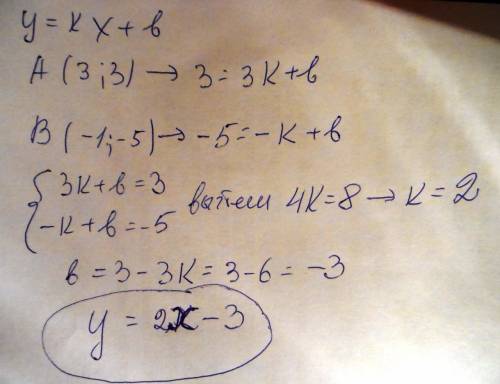 y = kx + b
A (3;3) → 3 = 3k + b
B (-1;-5) → -5 = -k + b
{ 3k + b = 3
-k + b = -5 вычтем 4k = 8 → k = 2
b = 3 - 3k = 3 - 6 = -3
y = 2x - 3